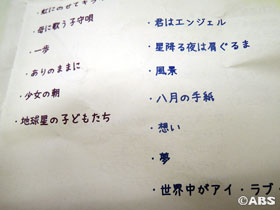 ・虹にのせて
・母に歌う子守唄
・一歩
・ありのままに
・少女の朝
・地球星の子どもたち
・君はエンジェル
・星降る夜は肩ぐるま
・風景
・八月の手紙
・想い
・夢
・世界中がアイ・ラブ
©ABS